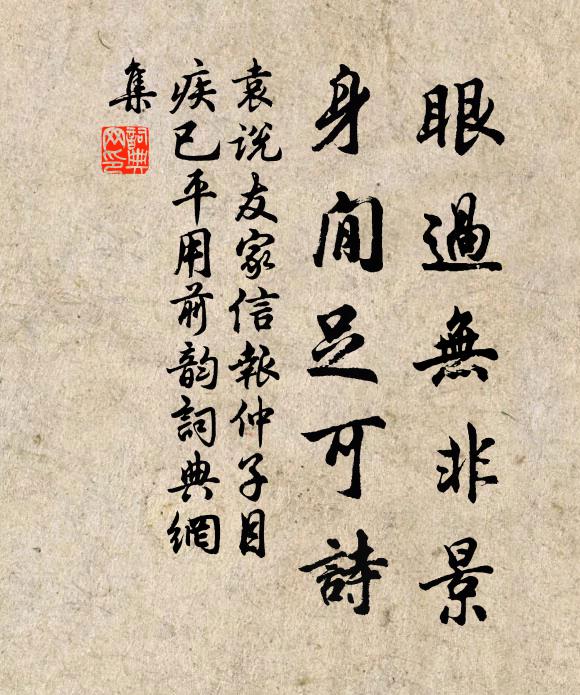 眼過無非景
身閒足可詩
袁說友家信報仲子目
疾已平用前韵詞典網
集
詞典
网印